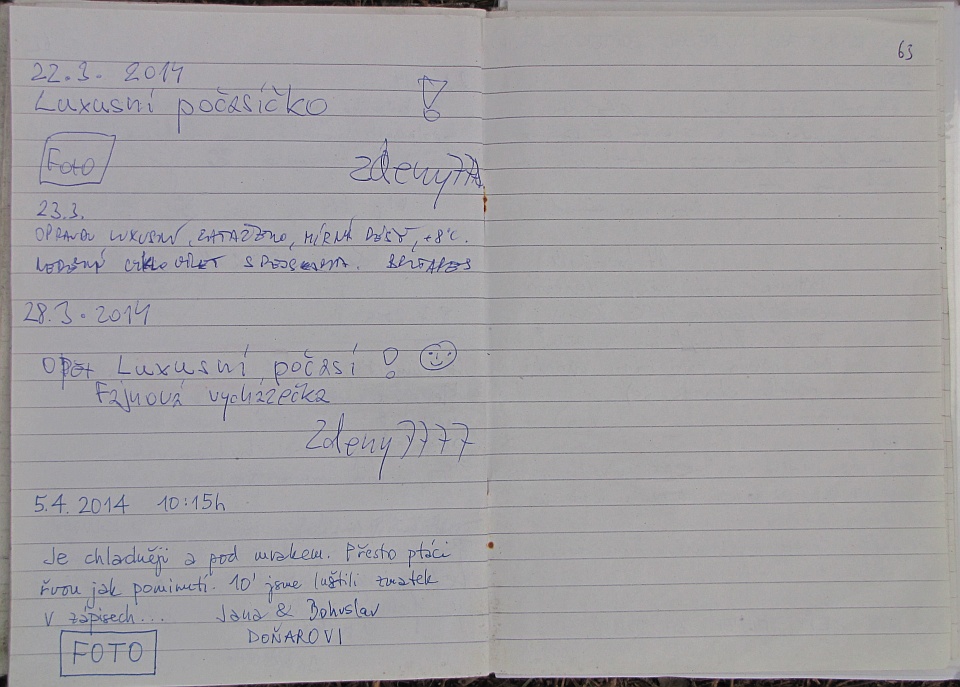 63
22.3. 2014
Luxusní počasíčko !
Foto
zdeny77
23.3.
OPRAVDU LUXUSNÍ, ZATAŽENO, MÍRNÁ DÉŠŤ, +8°C.
VÝLET S
28.3.2014
Opět Luxusní počasí !
Fajnová vycházečka
Zdeny7777
5.4. 2014 10:15h
Je chladněji a pod mrakem. Přesto ptáci
řvou jak pominutí. 10' jsme luštili zmatek
v zápisech... Jana & Bohuslav
DOŇAROVI
FOTO